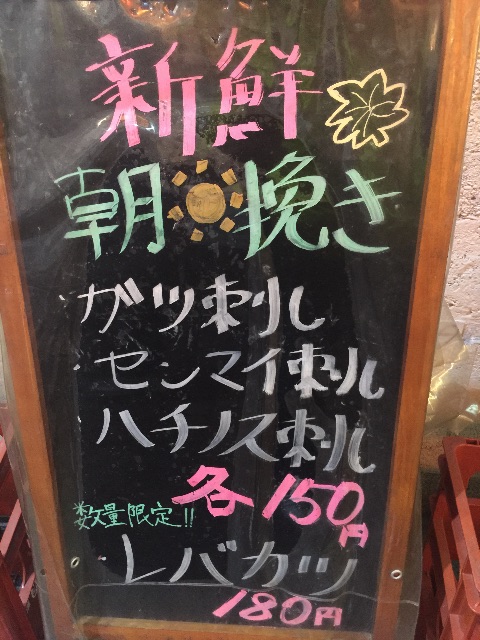 新鮮
朝挽き
・ガツ刺し
・センマイ刺し
・ハチノス刺し
各150円
数量限定!!
・レバカツ
180円